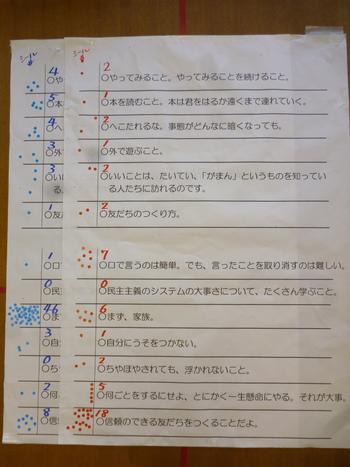 シール
4
○や
5
○本
4
○へ
3
○外
3
○いい
る人
1
○友
1
○口
0
○民主
46
○ま
3
○自分
0
○ちや
2
○何
8
○信
シール
2
○やってみること。やってみることを続けること。
1
○本を読むこと。本は君をはるか遠くまで連れていく。
2
○へこたれるな。事態がどんなに暗くなっても。
1
○外で遊ぶこと。
2
○いいことは、たいてい、「がまん」というものを知ってい
る人たちに訪れるのです。
2
○友だちのつくり方。
7
○口で言うのは簡単。でも、言ったことを取り消すのは難しい。
0
○民主主義のシステムの大事さについて、たくさん学ぶこと。
6
○まず、家族。
1
○自分にうそをつかない。
2
○ちやほやされても、浮かれないこと。
5
○何ごとをするにせよ、とにかく一生懸命にやる。それが大事。
18
○信頼のできる友だちをつくることだよ。